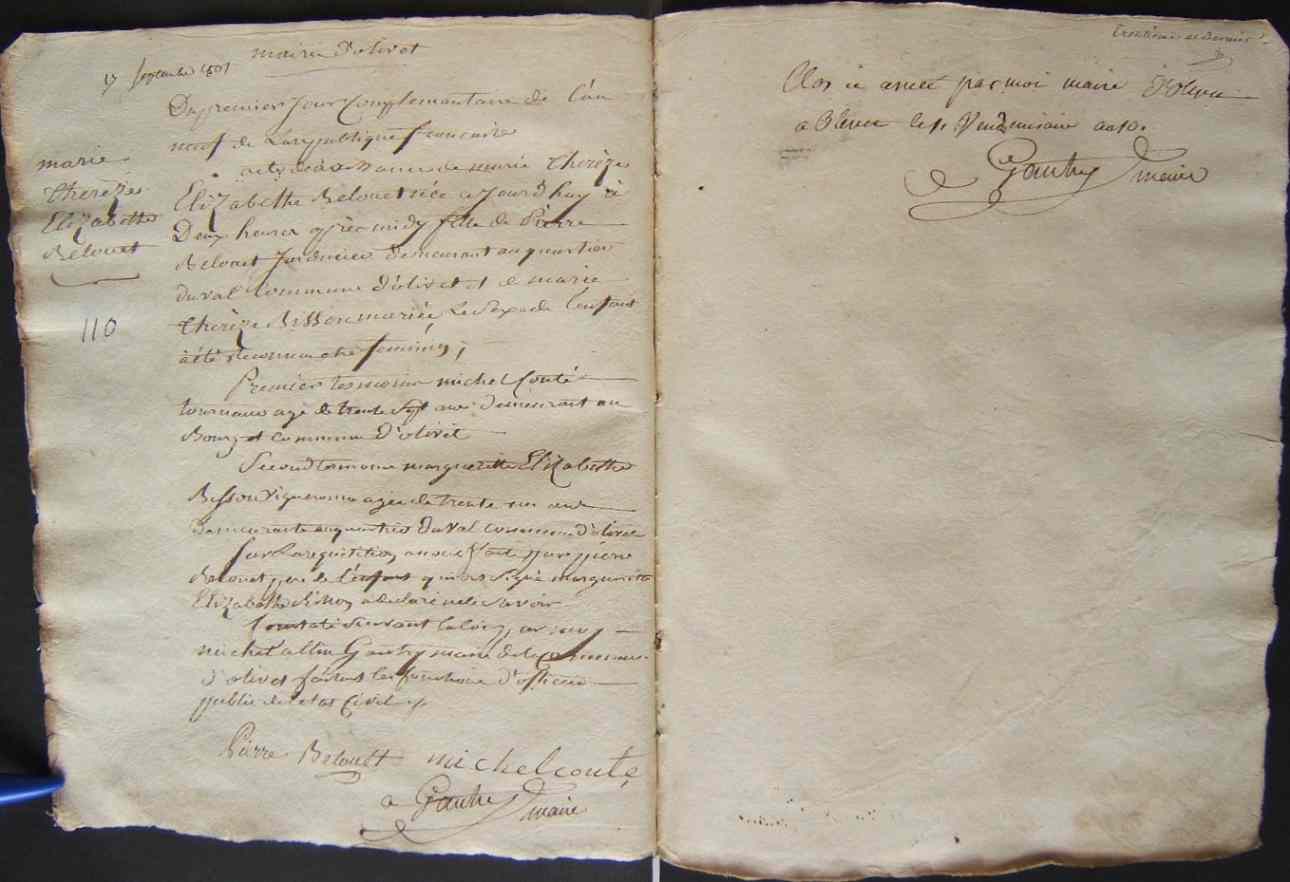 mairie d'olivet
17 Septembre 1801
Du premier Jour Complemantaire de l'an
neuf de La republique francaise
marie
therèze
Elizabethe
Belouet
110
acte de naissance de marie therèze
Elizabethe Belouet née ce Jourd'huy à
Deux heures après midy fille de Pierre
Belouet Jardinier demeurant au quartier
du val Commune d'olivet et de marie
therèze Bisson mariée Le Sexe de l'enfant
à été reconnu etre feminin ;
Premier tesmoin michel Couté
tourneur agé de trente Sept ans demeurant au
Bourg et commune d'olivet
Second temoin margueritte Elizabethe
Bisson vigneronne agée de trente un ans
demeurante au quartier Du val commune d'olivet
Sur La requisition a nous faite par pierre
Belouet pere de l'enfant qui a Signé margueritte
Elizabethe Bisson a declaré ne le Savoir
Constaté Suivant la loi par moy
michel Gautry maire de la Commune
d'olivet faisant les fonctions d'officier
public de l'etat Civil
Pierre Belouet michel couté
Gautry maire
Clos et areté par moi maire d'Olivet
a Olivet le 1. Vendemiaire an 10.
Gautry maire